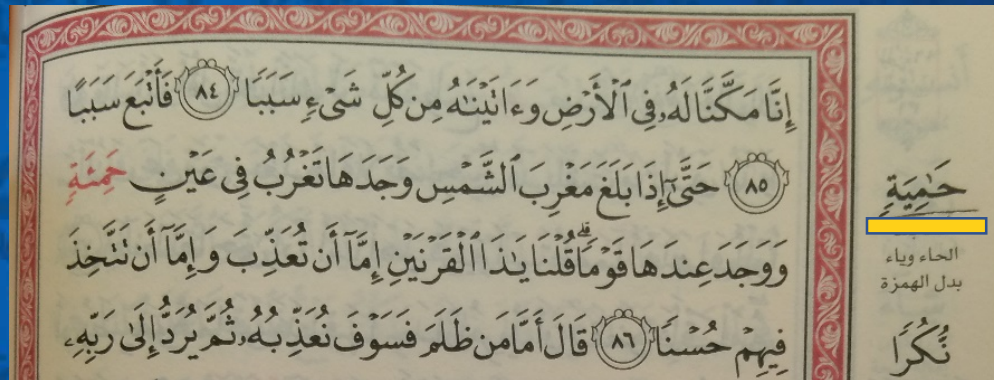 إِنَّا مَكَّنَّا لَهُۥ فِي ٱلْأَرْضِ وَءَاتَيْنَٰهُ مِن كُلِّ شَىْءٍ سَبَبًا ٨٤ فَأَتْبَعَ سَبَبًا
٨٥ حَتَّىٰٓ إِذَا بَلَغَ مَغْرِبَ ٱلشَّمْسِ وَجَدَهَا تَغْرُبُ فِي عَيْنٍ حَمِئَةٍ
وَوَجَدَ عِندَهَا قَوْمًاۗ قُلْنَا يَٰذَا ٱلْقَرْنَيْنِ إِمَّآ أَن تُعَذِّبَ وَإِمَّآ أَن تَتَّخِذَ
فِيهِمْ حُسْنًا ٨٦ قَالَ أَمَّا مَن ظَلَمَ فَسَوْفَ نُعَذِّبُهُۥ ثُمَّ يُرَدُّ إِلَىٰ رَبِّهِۦ
حَٰمِيَةٍ
الحاء وياء
بدل الهمزة
نُّكُرًا